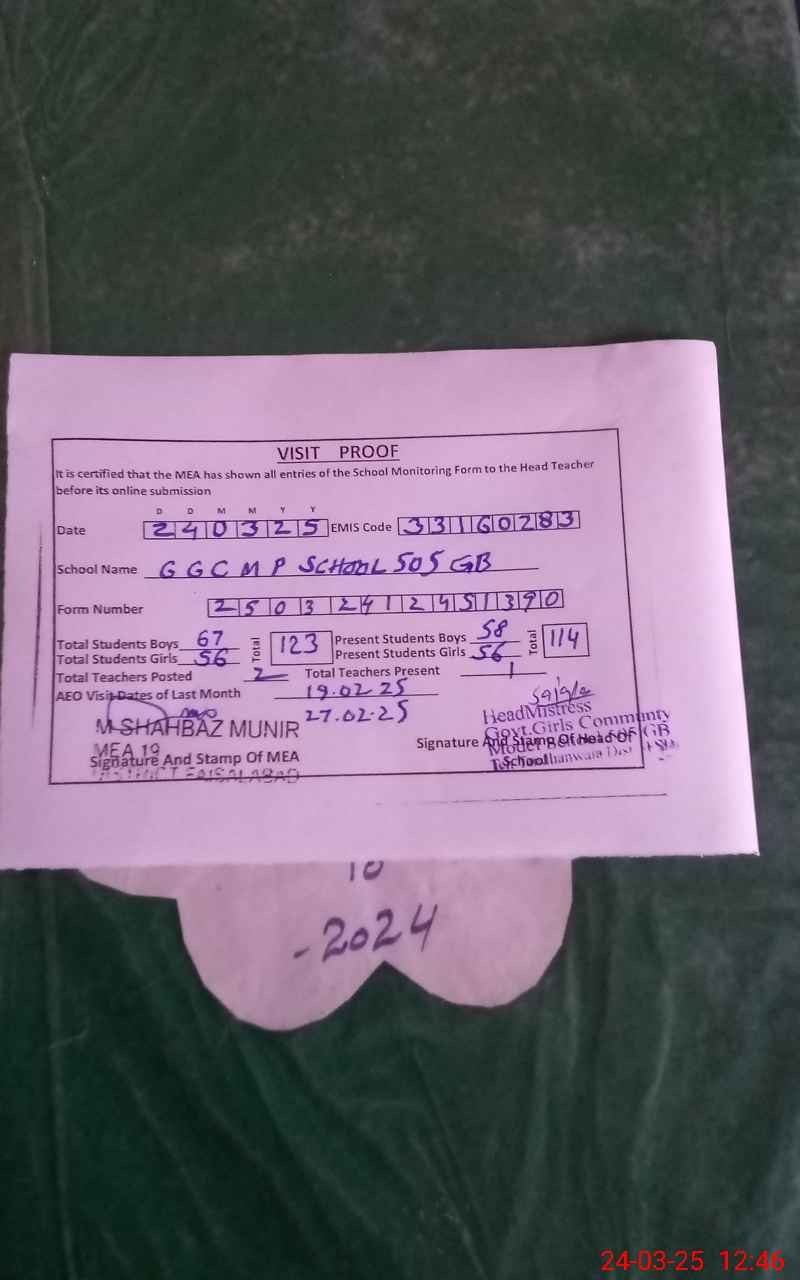 VISIT PROOF
It is certified that the MEA has shown all entries of the School Monitoring Form to the Head Teacher
before its online submission
D D M M Y Y
Date 240325 EMIS Code 33160283
School Name GGCMP SCHOOL 505 GB
Form Number 25032412451390
Total Students Boys 67 Total 123 Present Students Boys 58 Total 114
Total Students Girls 56 Present Students Girls 56
Total Teachers Posted 2 Total Teachers Present 1
AEO Visit Dates of Last Month 19.02.25
27.02.25
M SHAHBAZ MUNIR
MEA 19
Signature And Stamp Of MEA
DISTRICT FAISALABAD
HeadMistress
Govt.Girls Communty
Model School 505 GB
Signature And Stamp Of Head Of
School
10
-2024
24-03-25 12:46